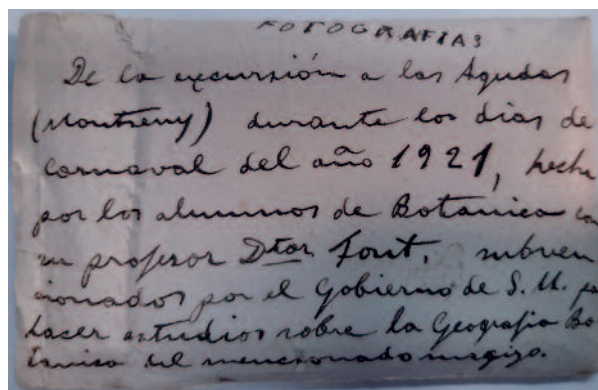 FOTOGRAFIAS
De la excursión a las Agudas
(Montseny) durante los días de
carnaval del año 1921, hecha
por los alumnos de Botanica con
su profesor Dtor Font, subven
cionados por el Gobierno de S. M. pa
hacer estudios sobre la Geografia Bo
tanica del mencionado macizo.